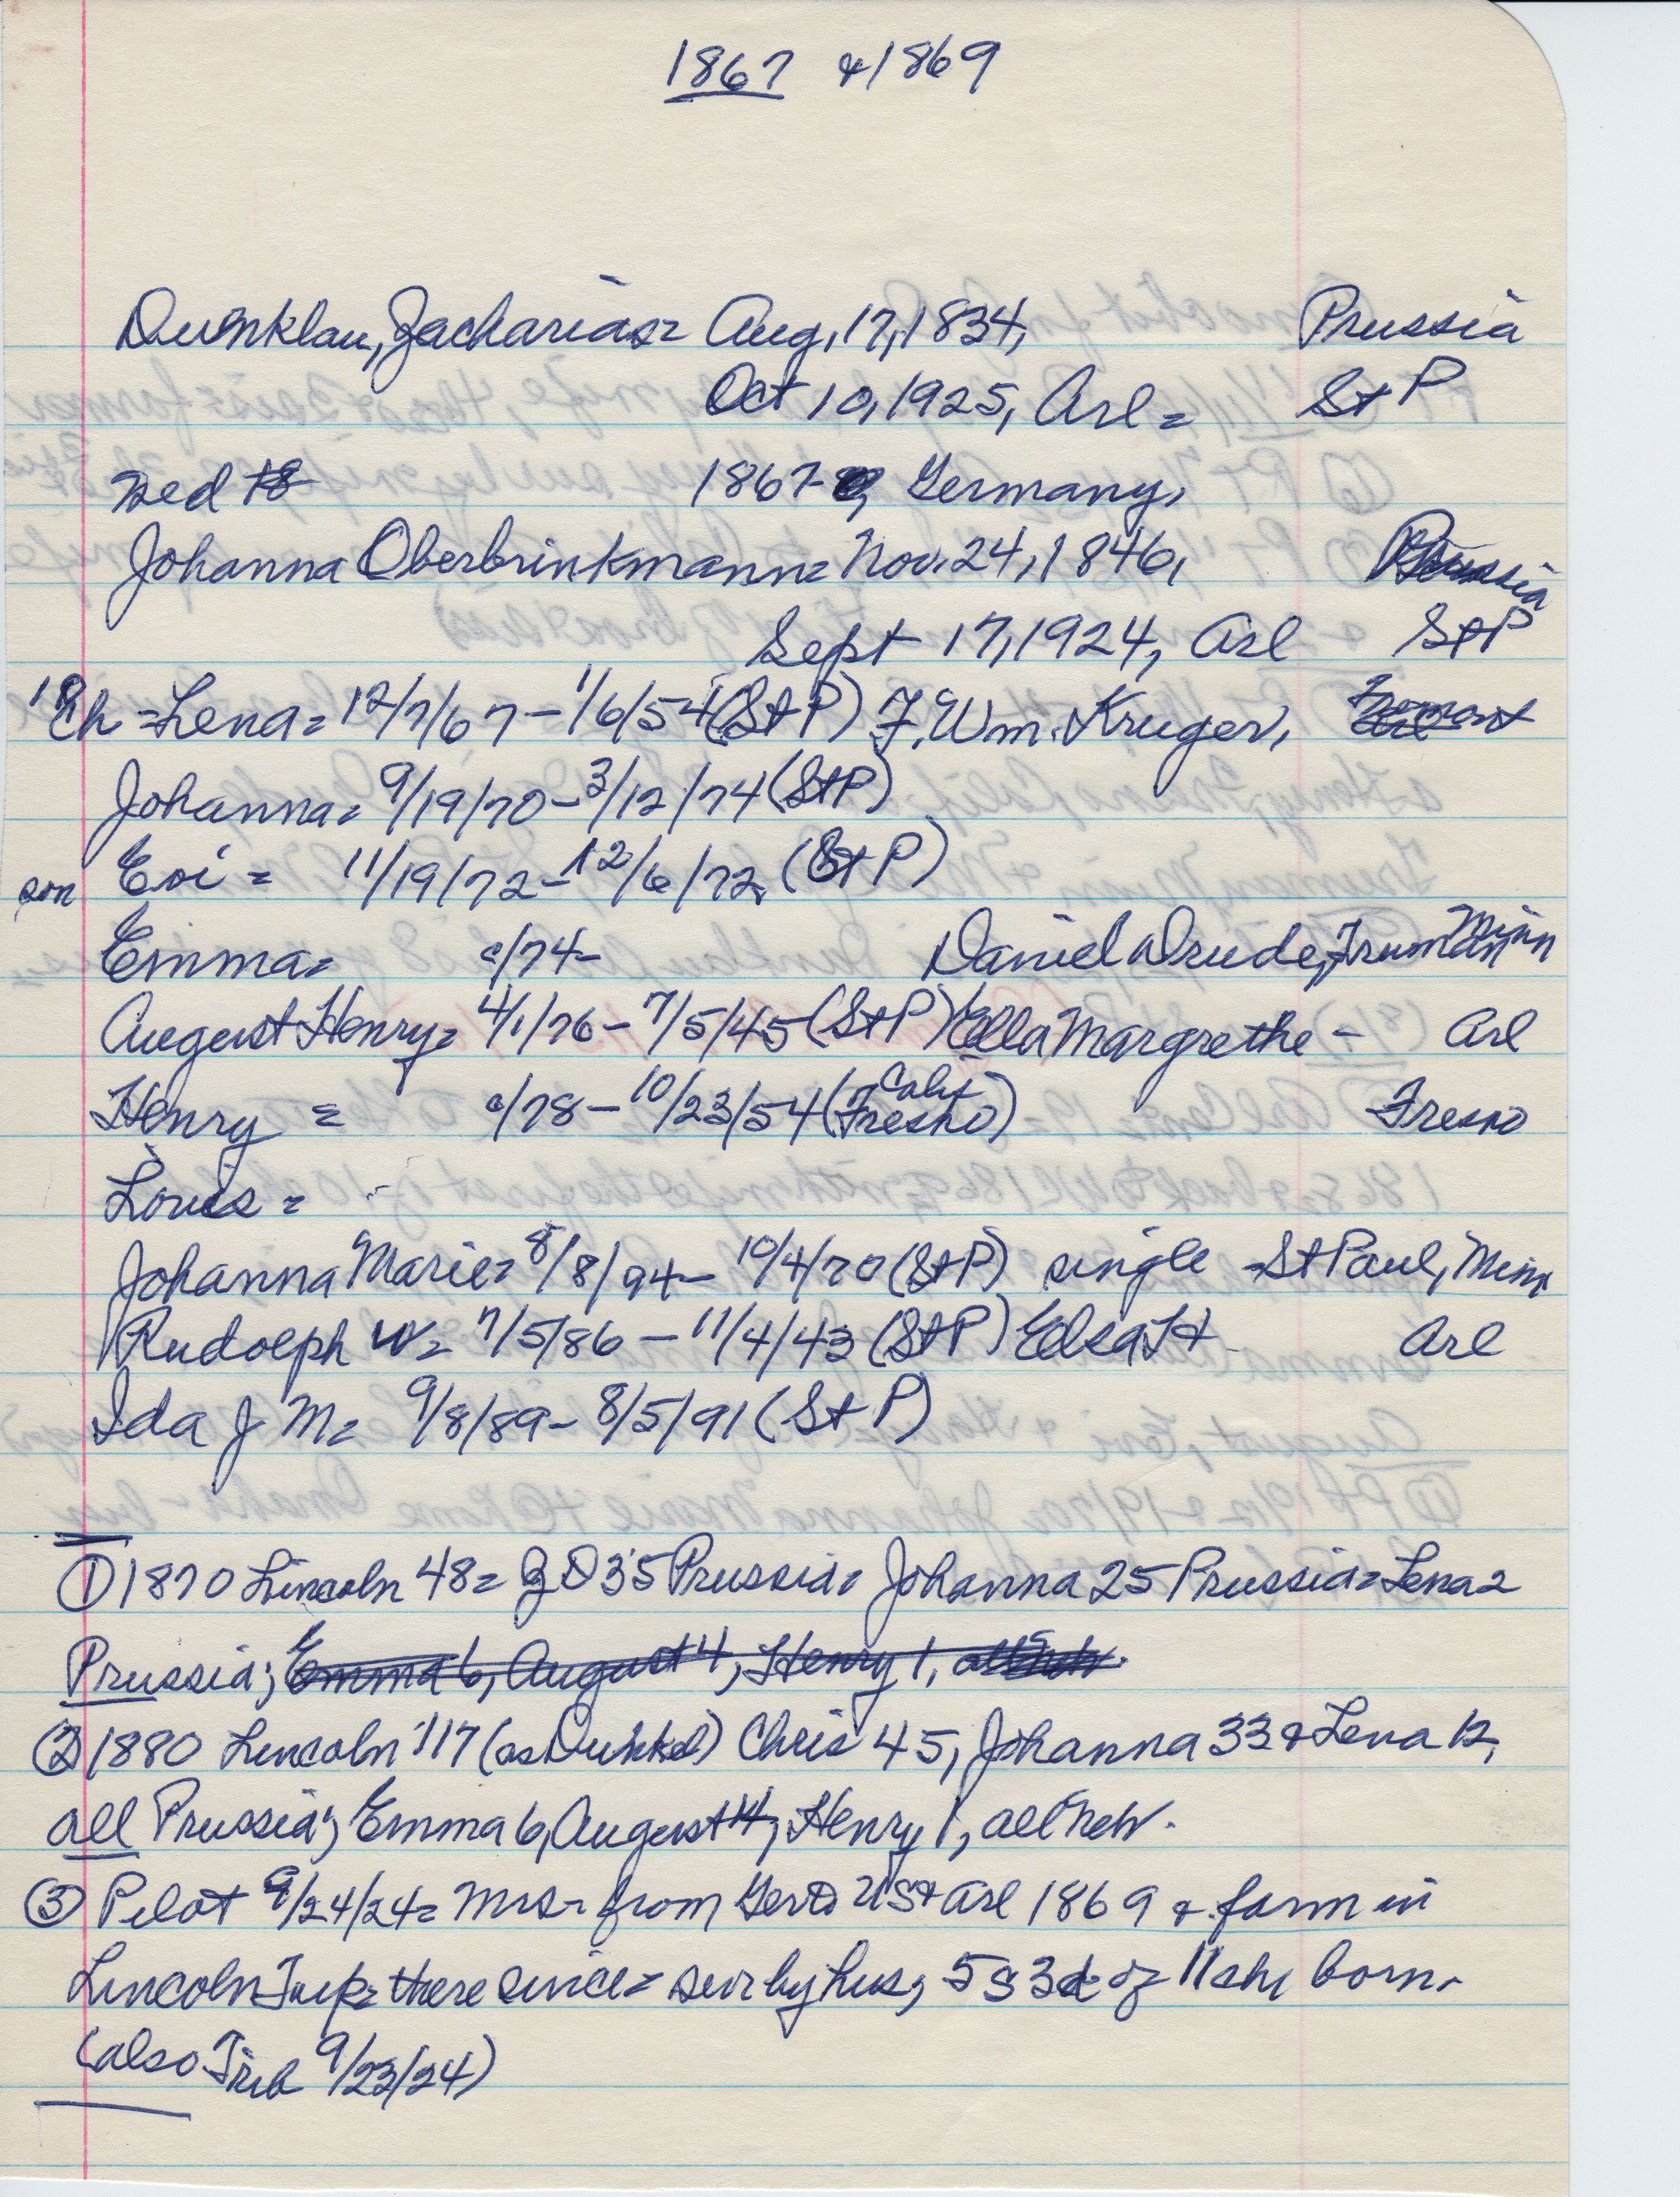 1867 & 1869
Dunklau, Zacharias= Aug, 17, 1834, Prussia
Oct 10, 1925, Arl= St P
Wed 18 1867, Germany,
Johanna Oberbrinkmann= Nov. 24, 1846, Prussia
Sept 17, 1924, Arl St P
10 Ch=Lena= 12/7/67-1/6/54 (St P) F. Wm. Kruger, Fremont
Johanna= 9/19/70-3/12/74 (St P)
son Evi= 11/19/72-12/6/72 (St P)
Emma= c/74- Daniel Drude, Truman Minn
August Henry= 4/1/76-7/5/45 (St P) Ella Margrethe - Arl
Henry = c/78-10/23/54 (Fresno Calif) Fresno
Louis =
Johanna Marie= 8/8/94-10/4/70 (St P) single -St Paul, Minn
Rudolph W= 7/5/86-11/4/43 (St P) Elsa H Arl
Ida J M= 9/8/89-8/5/91 (St P)
① 1870 Lincoln 48= Z D 35 Prussia= Johanna 25 Prussia= Lena 2
Prussia; Emma 6, August 4, Henry 1, all Neb.
② 1880 Lincoln 117 (as Dunkel) Chris 45, Johanna 33 & Lena 12,
all Prussia; Emma 6, August 4, Henry 1, all Neb.
③ Pilot 9/24/24= Mrs- from Ger to US & Arl 1869 & farm in
Lincoln Twp= there since= sur by hus, 5 s 3 d of 11 ch born.
(also Trib 9/23/24)